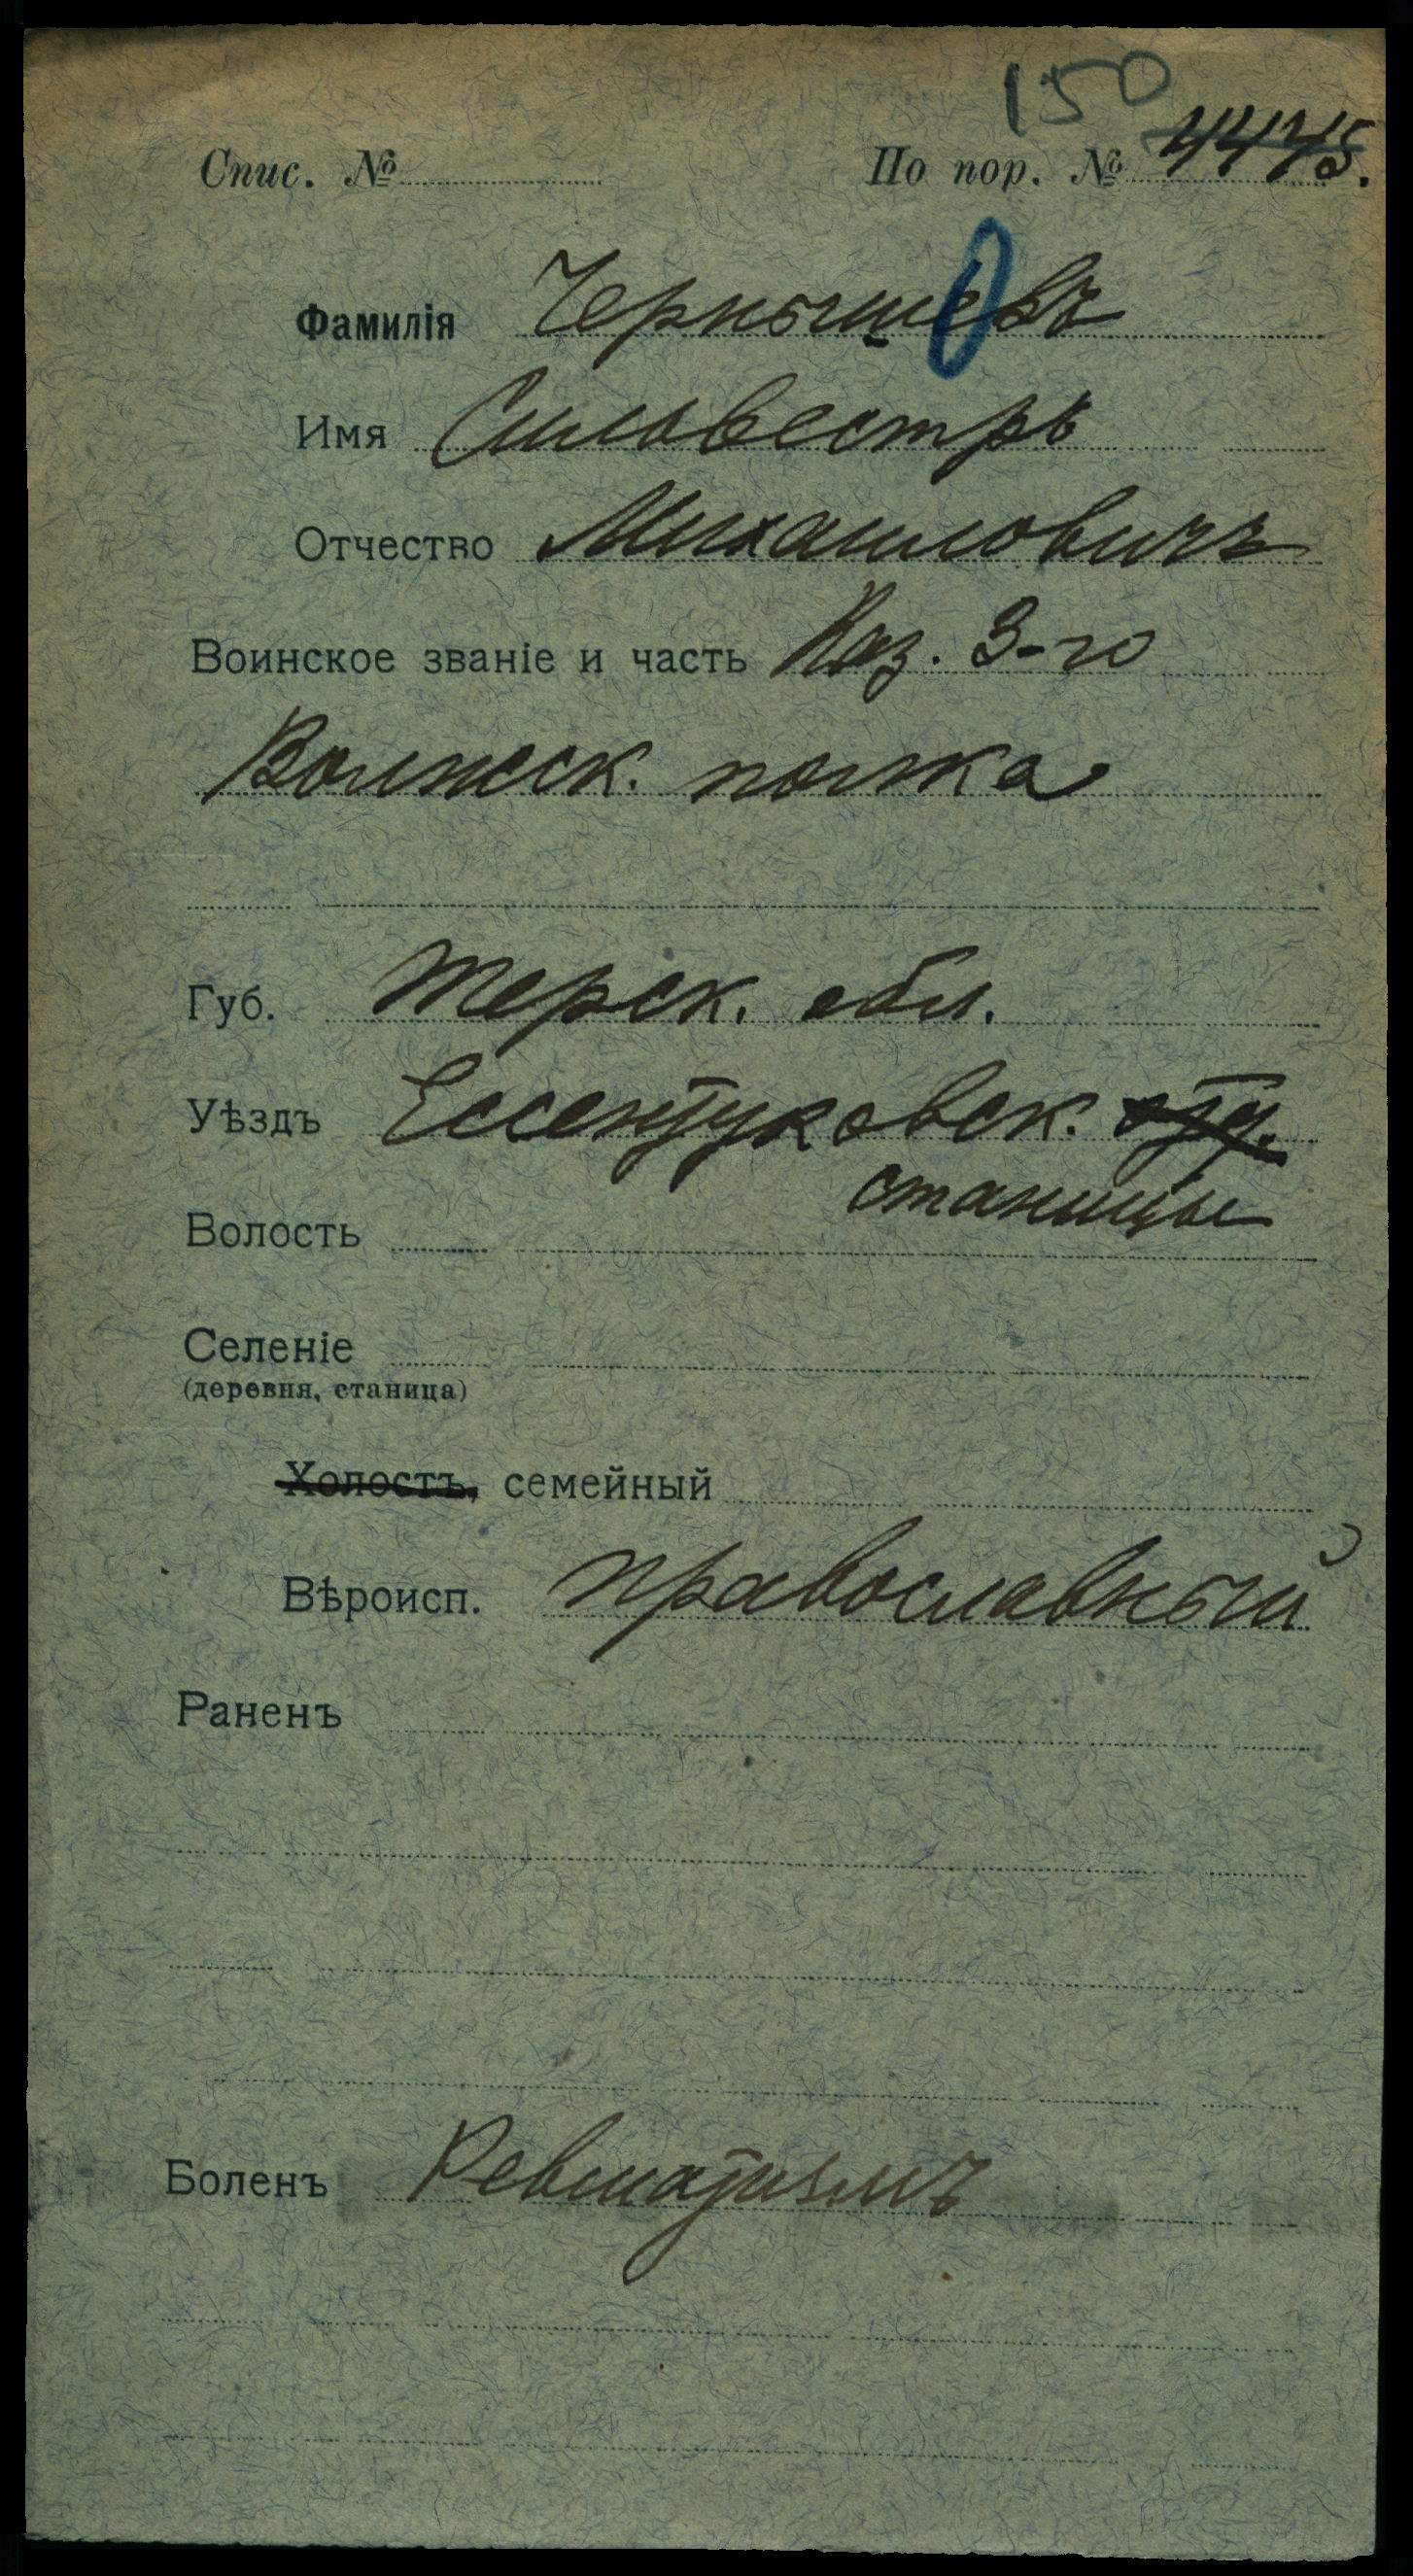 150
Спис. № По пор. № 4445.
Фамилія Чернышевъ
Имя Сильвестръ
Отчество Михаиловичъ
Воинское званіе и часть Каз. 3-го
Волжск. полка
Губ. Терск. обл.
Уѣздъ Ессентуковск. отд.
станицы
Волость
Селеніе
(деревня, станица)
Холостъ, семейный
Вѣроисп. православный
Раненъ
Боленъ Ревматизмъ